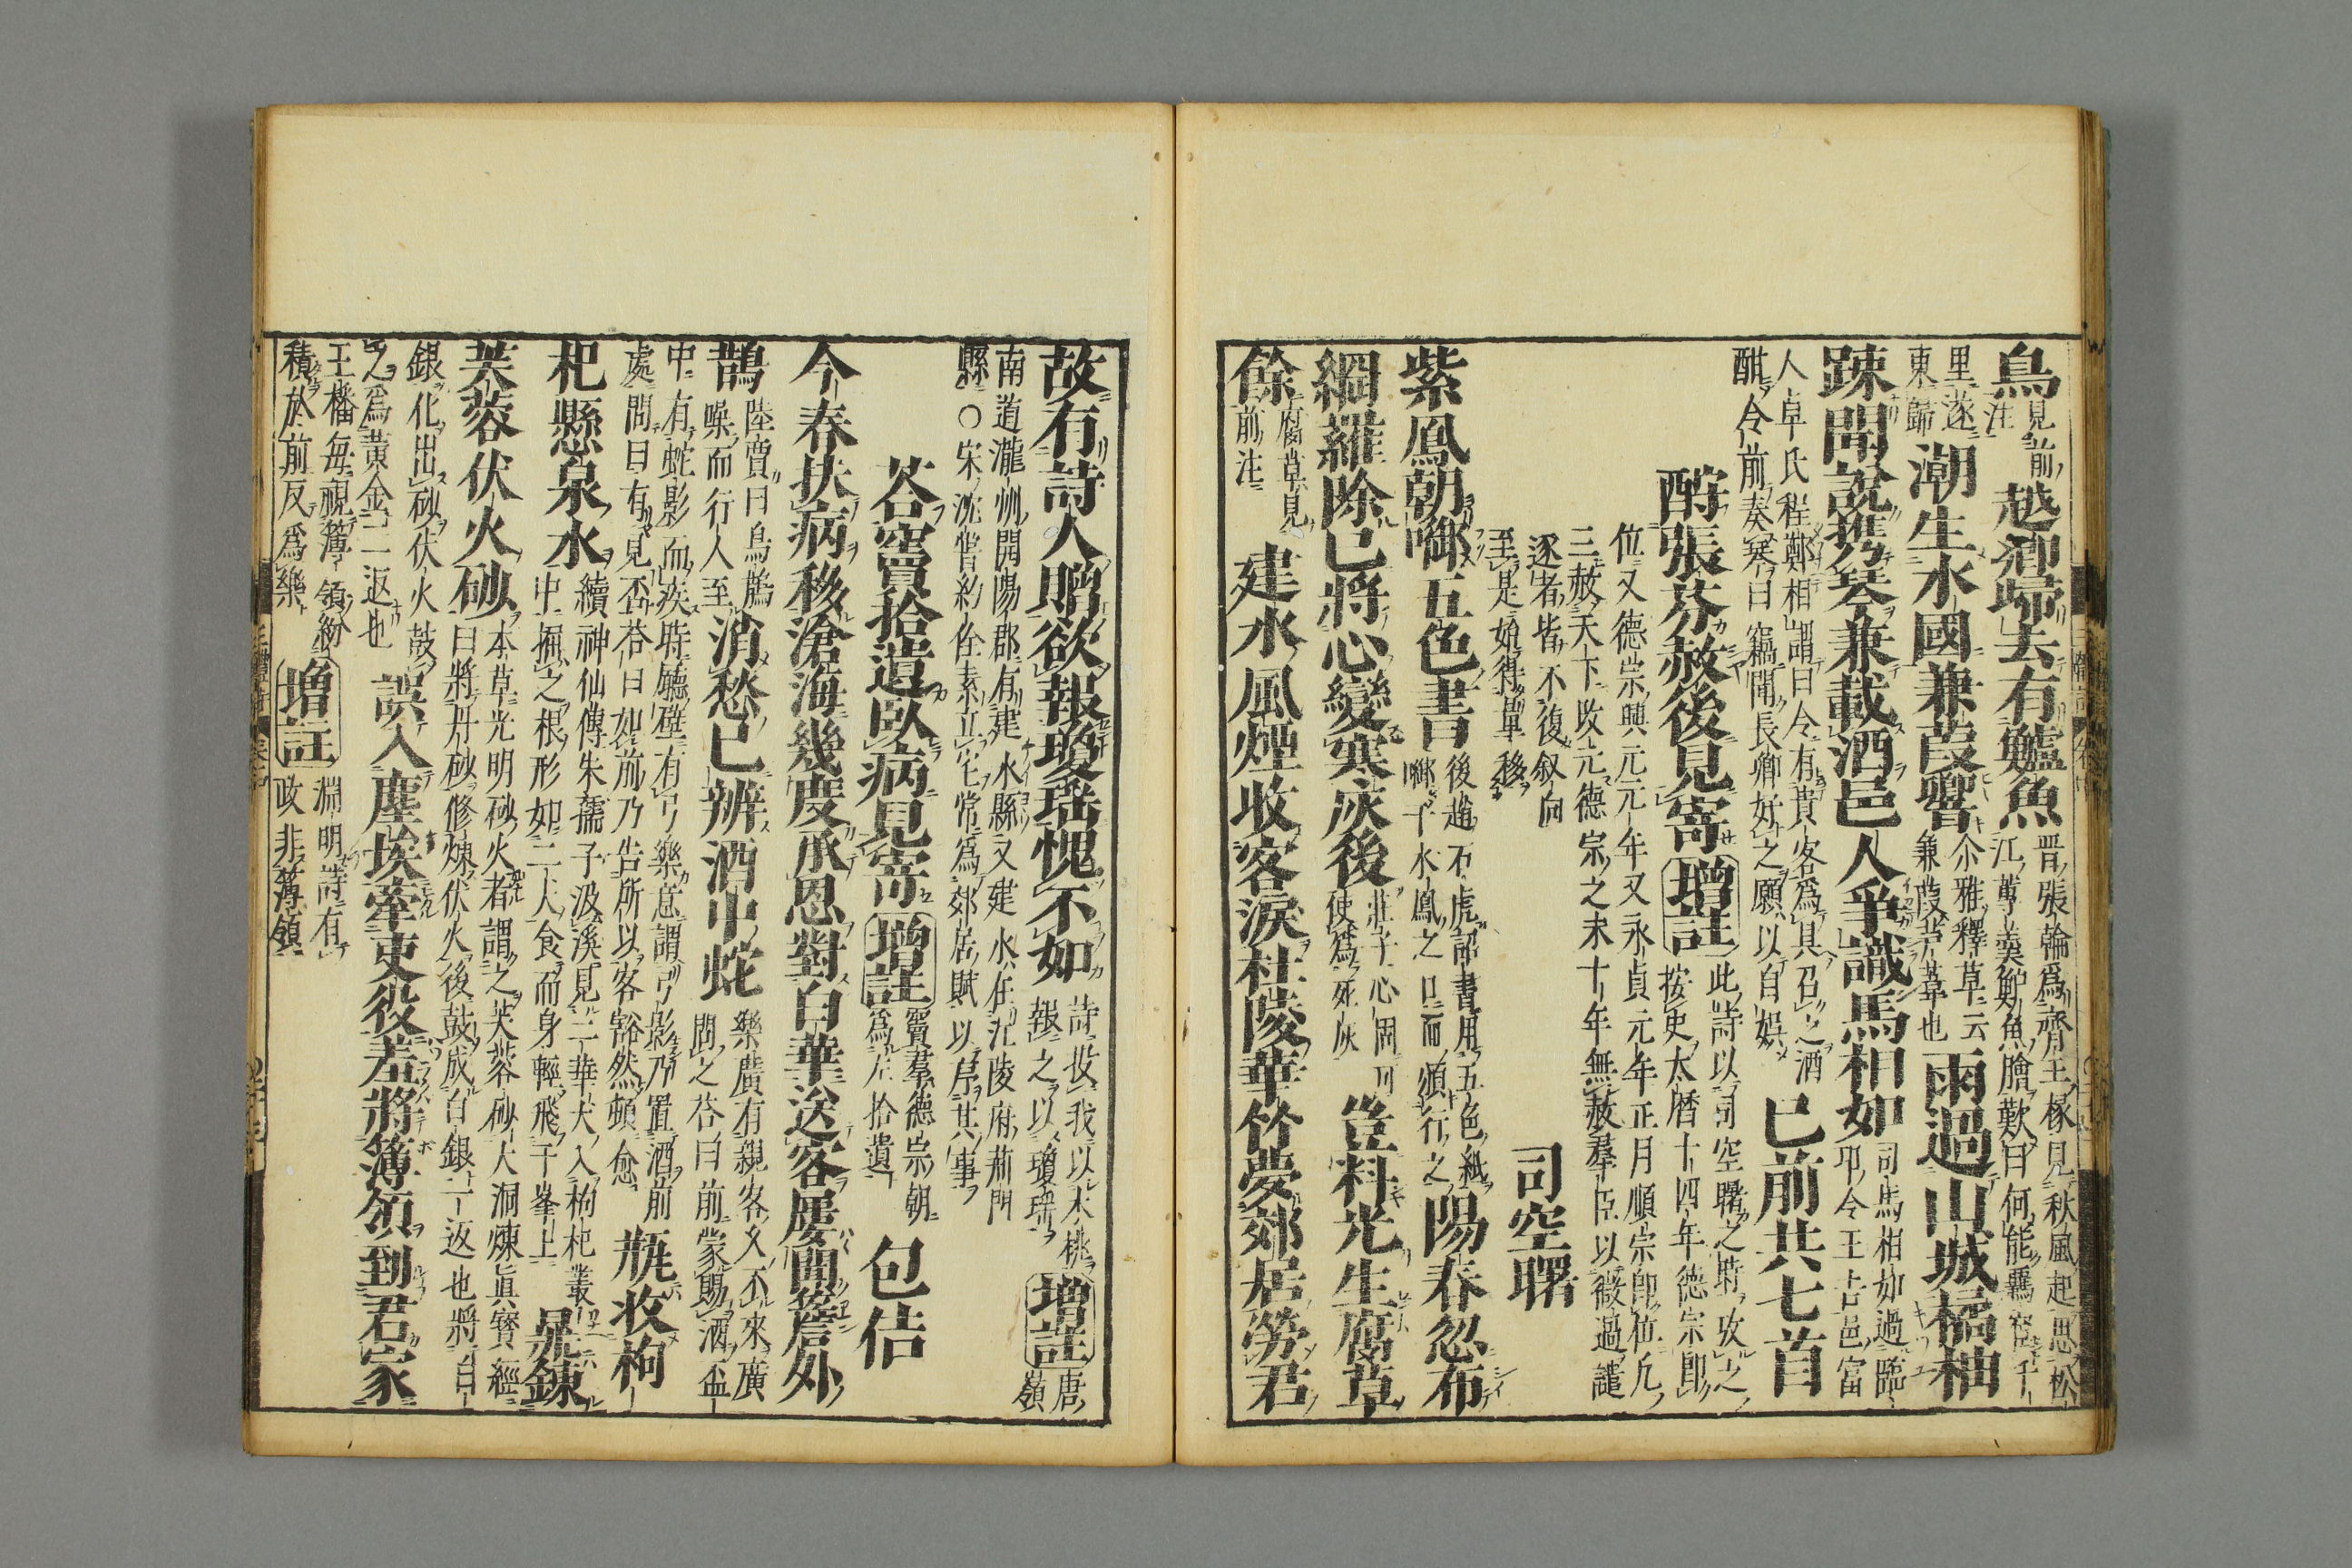 鳥見前注越鄉歸去有鱸魚晋張翰爲齊王掾見秋風起思松江蓴羹鱸魚膾歎曰何能羈宦千
里遂東歸潮生水國蒹葭響尒雅釋草云蒹葭苦葦也雨過山城橘柚
踈聞說携琴兼載酒邑人爭識馬相如司馬相如過臨卭令王吉邑富
人卓氏程鄭相謂曰令有貴客爲具召之酒酣令前奏琴曰竊聞長卿好之願以自娯已前共七首
酧張芬赦後見寄增註此詩以司空曙之時攷之按史太曆十四年德宗即
位又德宗興元元年又永貞元年正月順宗即位凡三赦天下改元德宗之末十年無赦羣臣以微過譴
逐者皆不復叙向至是始得量移司空曙
紫鳳朝啣五色書後趙石虎詔書用五色紙啣于水鳳之口而頒行之陽春忽布
網羅除已將心變寒灰後莊子心固可使爲死灰豈料光生腐草
餘腐草見前注建水風煙收客淚杜陵華竹夢郊居勞君
故有詩人贈欲報瓊瑤愧不如詩投我以木桃報之以瓊瑤增註唐嶺
南道瀧州開陽郡有建水縣又建水在江陵府荊門縣○宋沈𣅜約侄素立宅常爲郊居賦以序其事
荅竇拾遺臥病見寄增註竇羣德宗朝爲左拾遺包佶
今春扶病移滄海幾度承恩對白華送客屢聞簷外
鵲陸賈曰烏鵲噪而行人至消愁已辨酒中蛇樂廣有親客久不來廣問之荅曰前蒙賜酒盃
中有蛇影而疾時廳壁有弓樂意謂弓影乃置酒前處問曰有見否荅曰如前乃告所以客豁然頓愈瓶收枸
杞懸泉水續神仙傳朱孺子汲溪見二華犬入枸杞叢中掘之根形如二犬食而身輕飛于峯上鼎鍊
芙蓉伏火砂本草光明砂火者謂之芙蓉砂大洞煉眞寳經曰將丹砂修煉伏火後鼓成白銀二返也將白
銀化出砂伏火鼓之爲黄金二返也誤入塵埃牽吏役羞將簿領到君家
王播每視簿領紛積於前反爲樂增註淵明詩有政非簿領